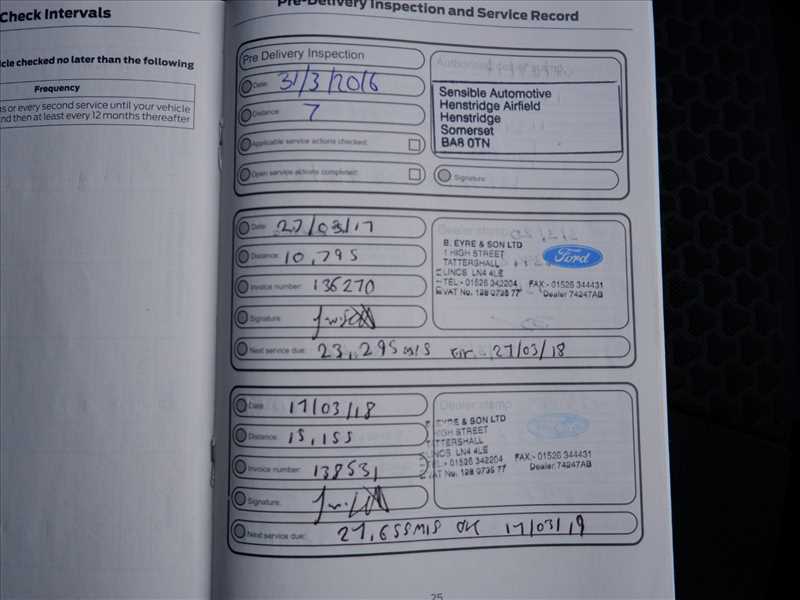 Check Intervals
cle checked no later than the following
Frequency
s or every second service until your vehicle
nd then at least every 12 months thereafter
Pre-Delivery Inspection and Service Record
Pre Delivery Inspection
Date: 31/3/2016
Distance: 7
Applicable service actions checked:
Open service actions completed:
Sensible Automotive
Henstridge Airfield
Henstridge
Somerset
BA8 0TN
Signature
Date: 27/03/17
Distance: 10,795
Invoice number: 136270
Signature:
Next service due: 23,295 27/03/18
Dealer stamp
B. EYRE & SON LTD
1 HIGH STREET
TATTERSHALL
LINCS LN4 4LE
TEL - 01526 342204 FAX - 01526 344431
VAT No. 128 0735 77 Dealer 74247AB
Ford
Date: 17/03/18
Distance: 15,155
Invoice number: 138531
Signature:
Next service due: 27,655 MLS OR 17/03/19
Dealer stamp
EYRE & SON LTD
HIGH STREET
TATTERSHALL
LINCS LN4 4LE
TEL - 01526 342204 FAX - 01526 344431
VAT No. 128 0735 77 Dealer 74247AB
Ford
25